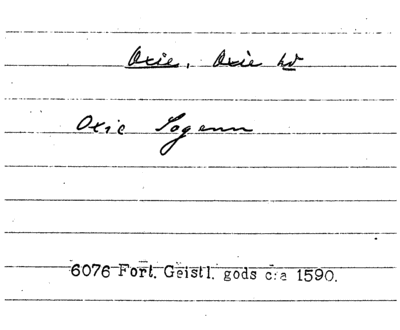 Oxie, Oxie hd
Oxie Sogenn
6076 Fort. Geistl. gods c:a 1590.